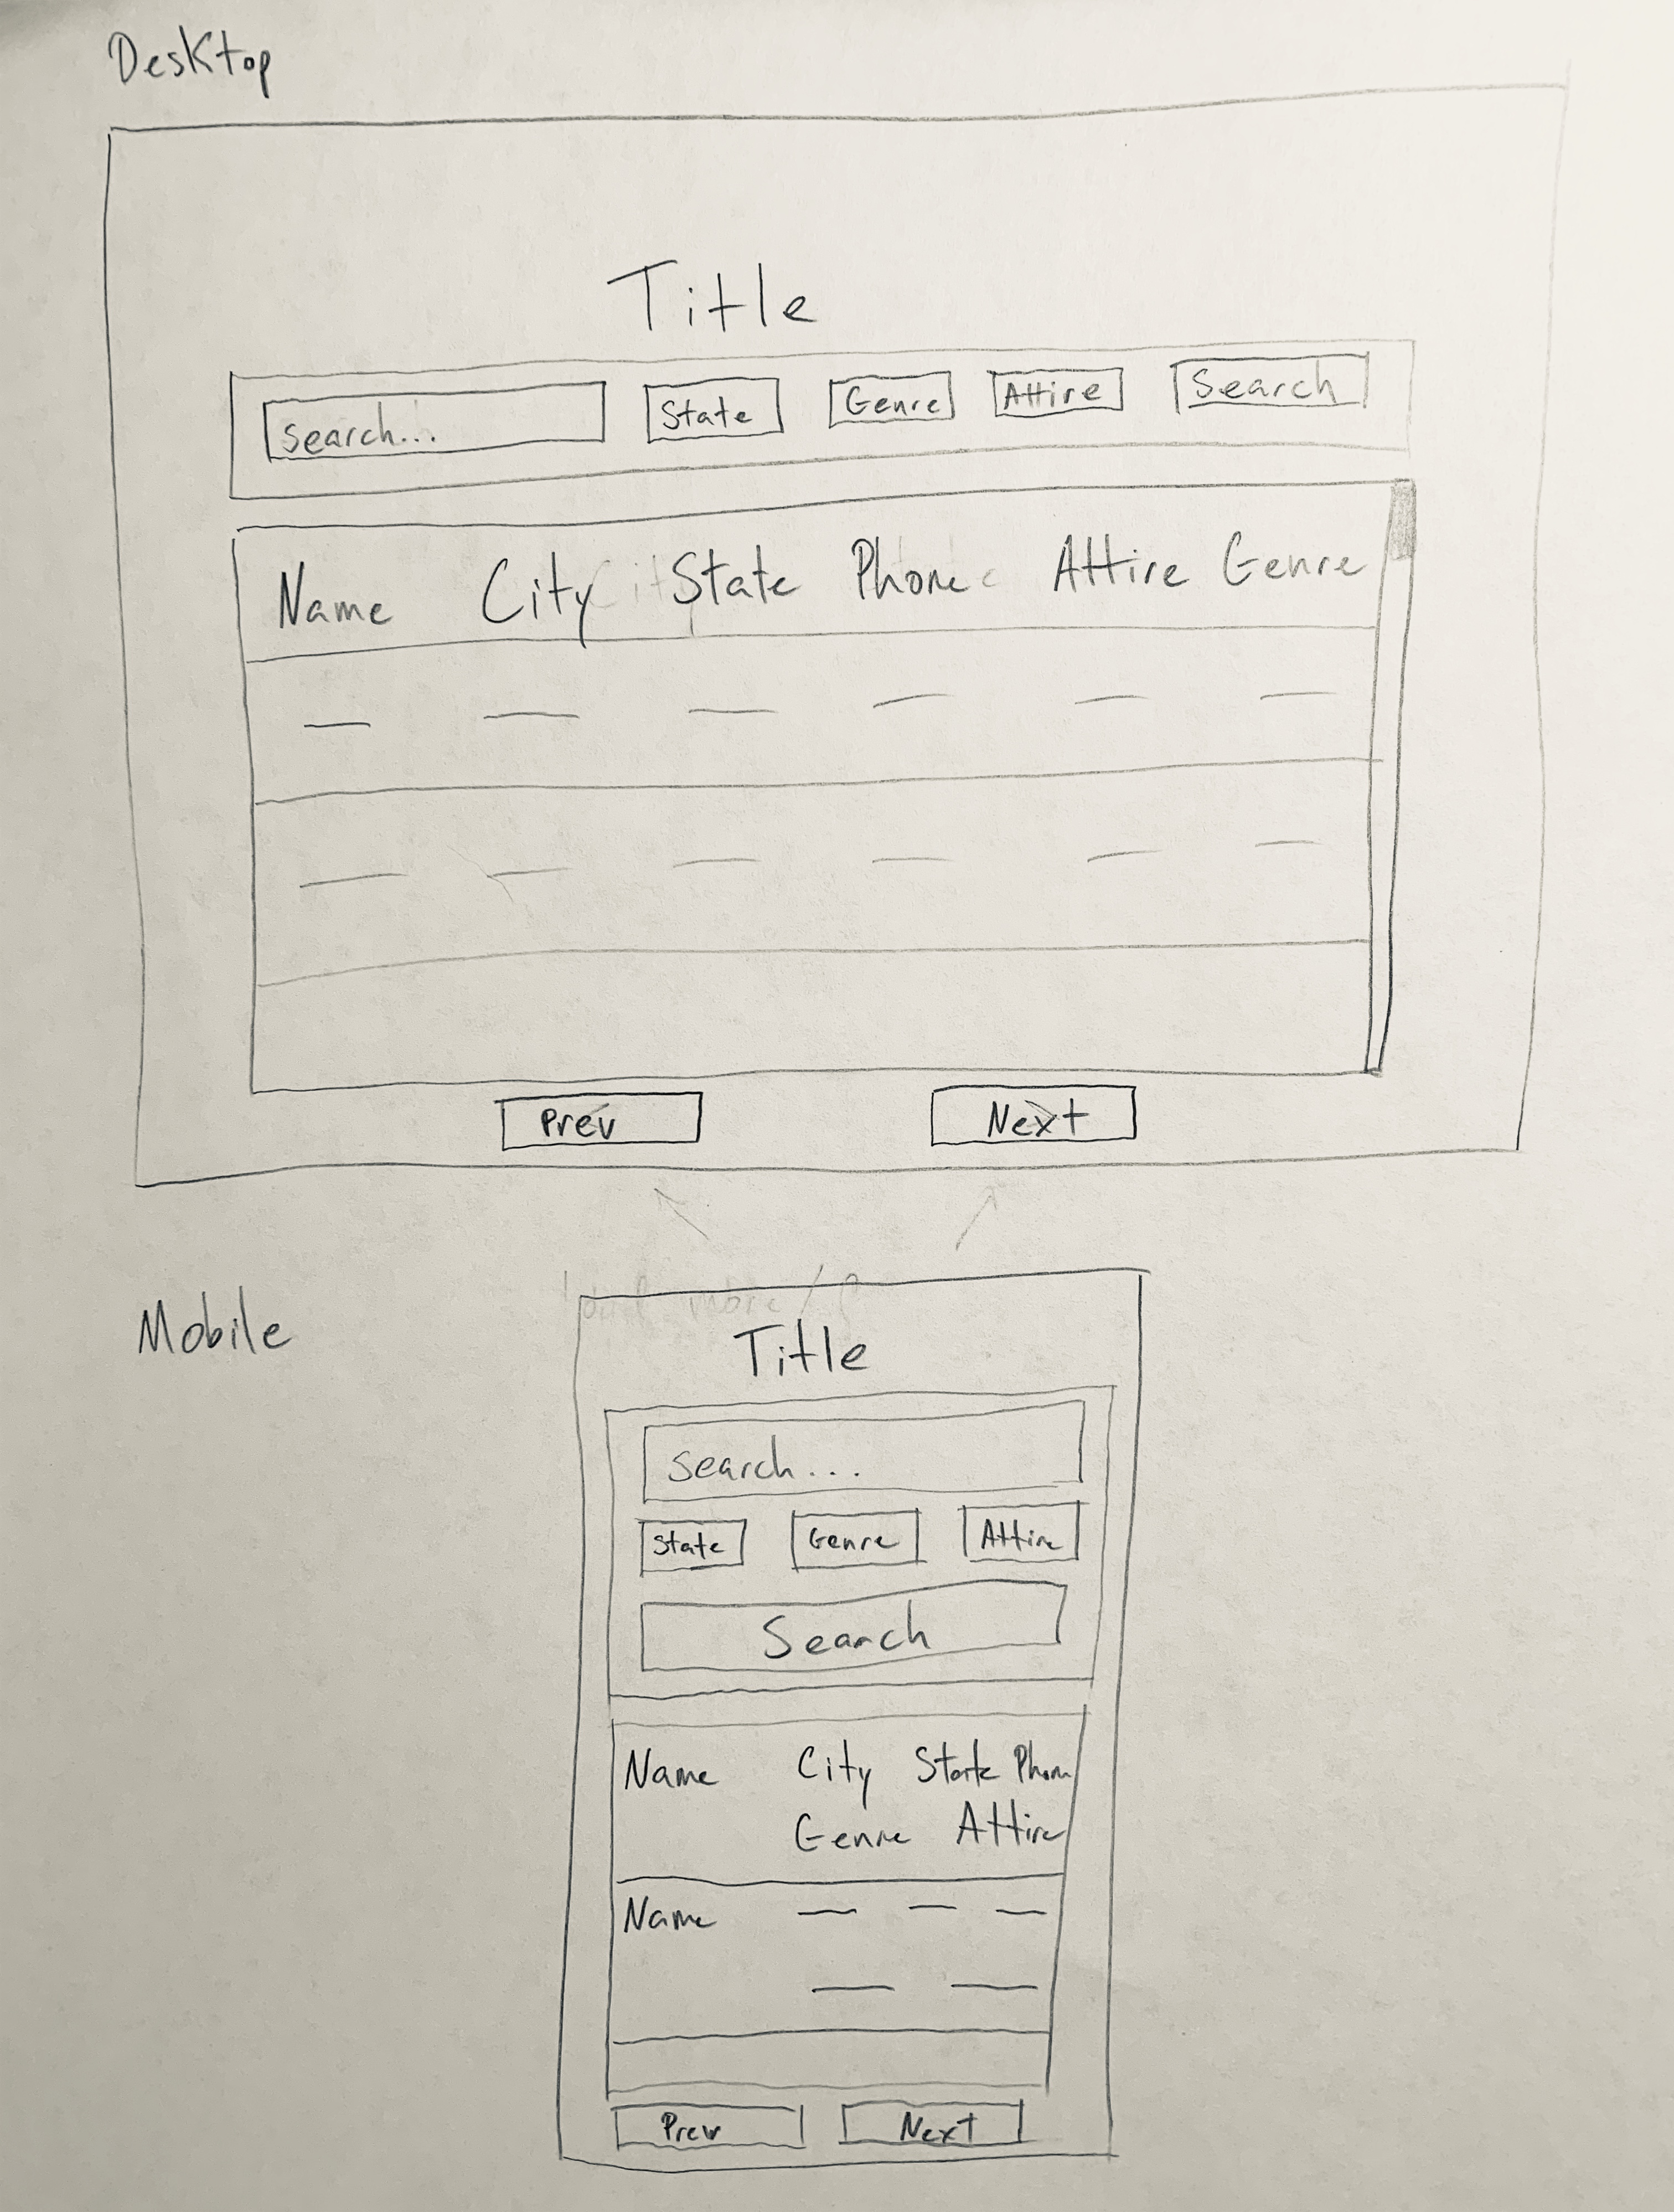 Desktop
Title
search... State Genre Attire Search
Name City State Phone Attire Genre
Prev Next
Mobile
Title
search...
State Genre Attire
Search
Name City State Phone
Genre Attire
Name
Prev Next